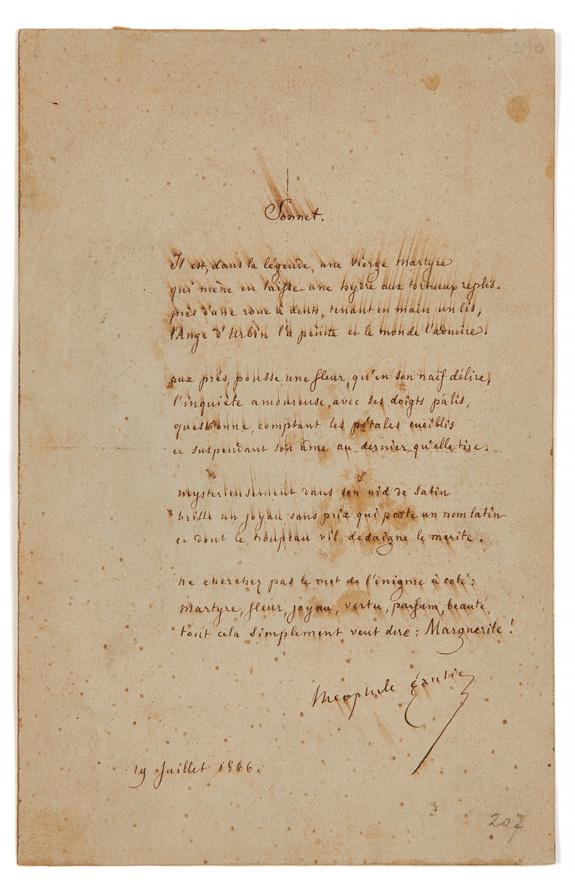 Sonnet.
Il est, dans la légende, une vierge martyre
qui mène en laisse une hydre aux tortueux replis.
près d'une roue à dents, tenant en main un lis,
l'Ange d'Urbin l'a peinte et le monde l'admire!
aux prés, pousse une fleur, qu'en son naïf délire,
l'inquiète amoureuse, avec ses doigts pâlis,
questionne, comptant les pétales cueillis
et suspendant son âme au dernier qu'elle tire.
mystérieusement dans son nid de satin
brille un joyau sans prix qui porte un nom latin
et dont le troupeau vil dédaigne le mérite.
ne cherchez pas le mot de l'énigme à coté:
martyre, fleur, joyau, vertu, parfum, beauté,
tout cela simplement veut dire: Marguerite!
Théophile Gautier
19 Juillet 1866.
207